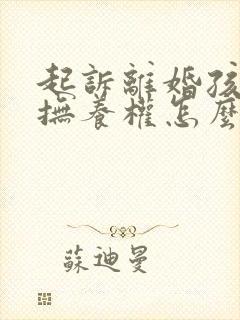 起訴離婚孩
撫養權怎麼
蘇迪曼